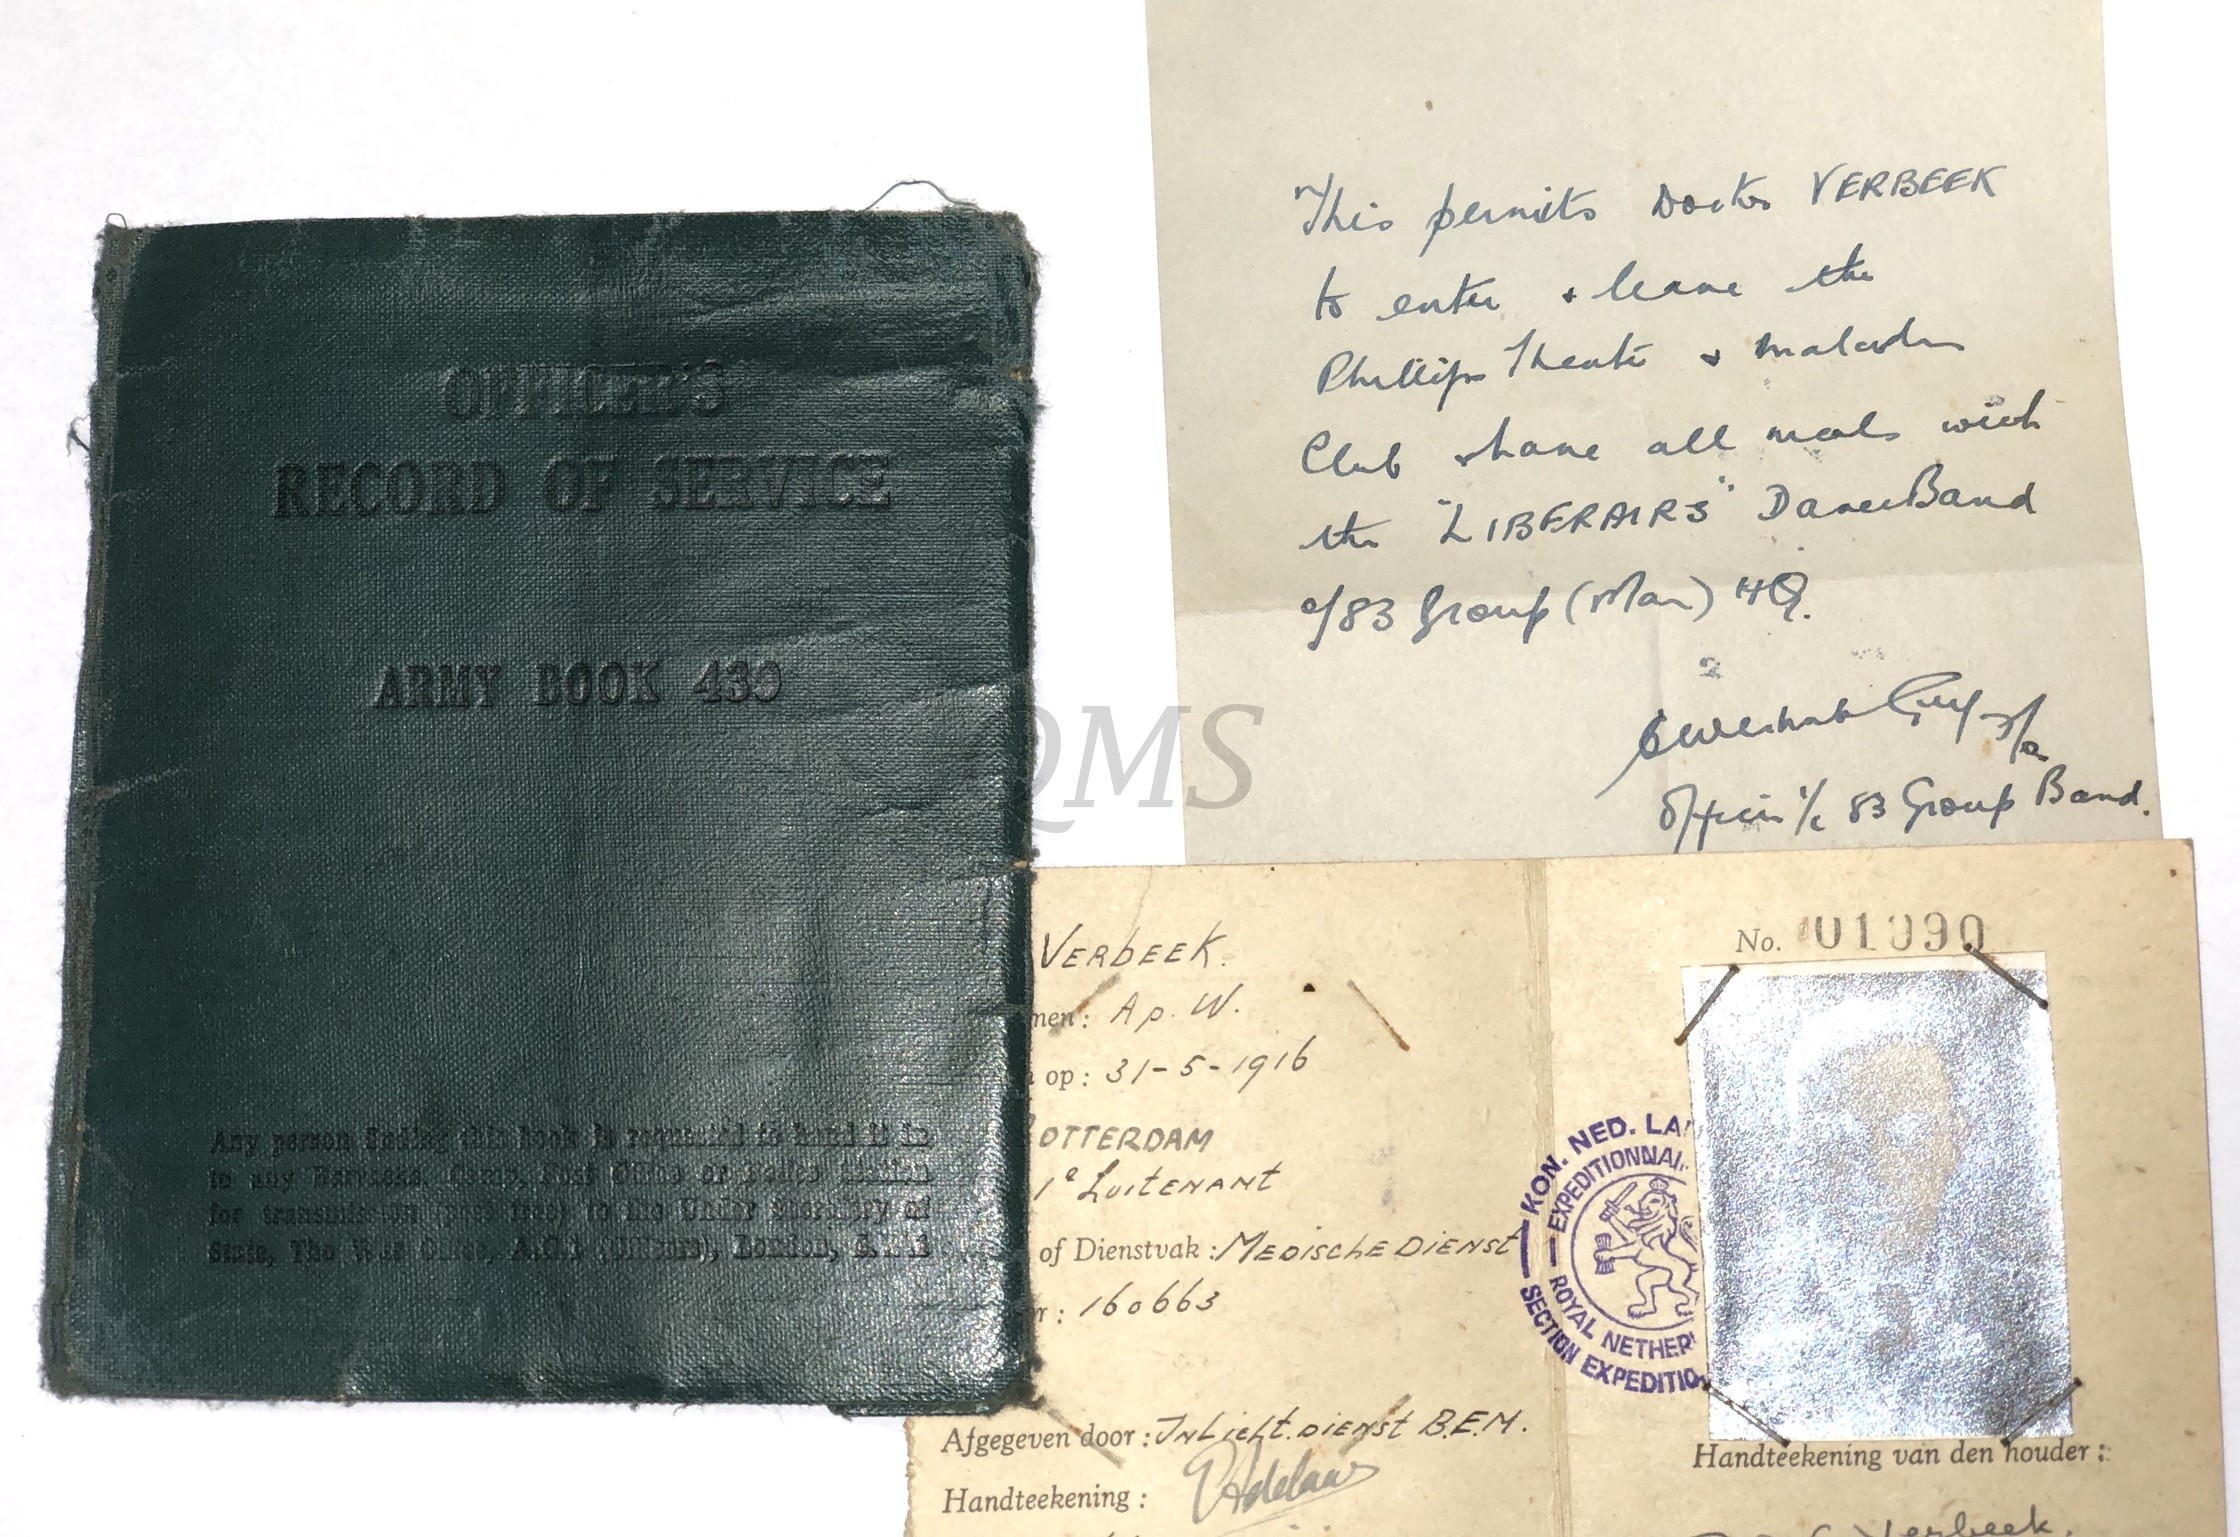 OFFICER'S
RECORD OF SERVICE
ARMY BOOK 439
Any person finding this book is requested to hand it in
to any Barracks, Camp, Post Office or Police Station
for transmission (post free) to the Under Secretary of
State, The War Office, London,
This permits Doctor VERBEEK
to enter + leave the
Phillips Theatre +
Club + have all meals with
the "LIBERAIRS" Dance Band
of 83 Group (Main) HQ.
Officer i/c 83 Group Band.
QMS
VERBEEK.
men: A p. W.
op: 31-5-1916
ROTTERDAM
1e LUITENANT
of Dienstvak: MEDISCHE DIENST
r: 160663
Afgegeven door: INLICHT. DIENST B.E.M.
Handteekening:
No. 01090
KON. NED. LA
EXPEDITIONNAI
ROYAL NETHER
SECTION EXPEDITIO
Handteekening van den houder:
Verbeek.